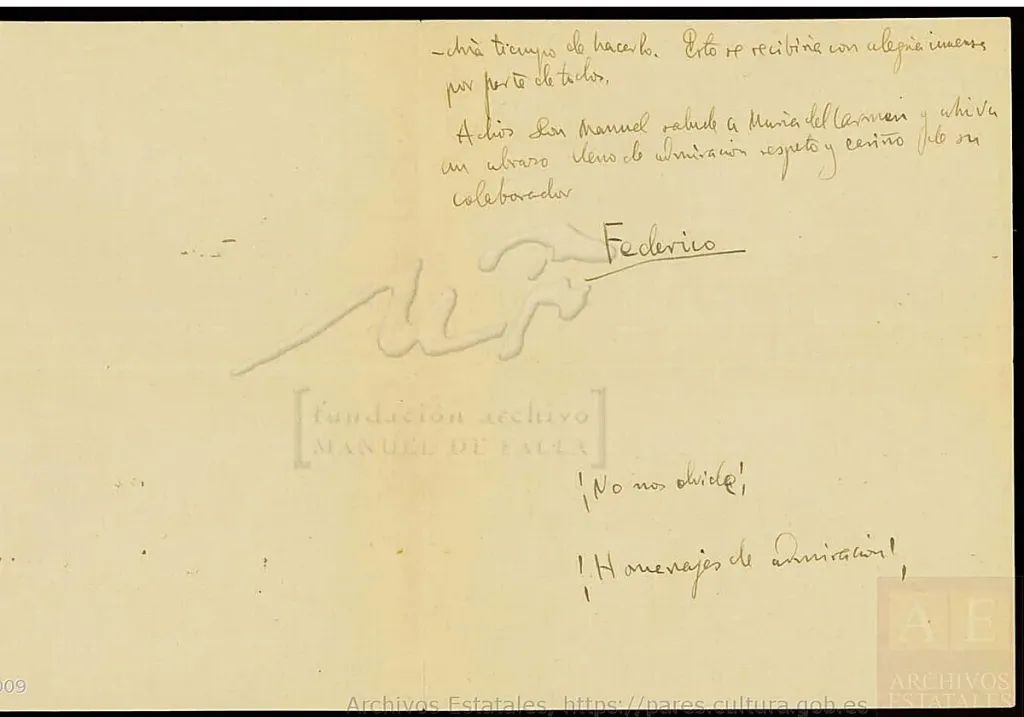 -dría tiempo de hacerlo. Esto se recibiría con alegría inmensa
por parte de todos.
Adios Don Manuel salude a Maria del Carmen y ahi va
un abrazo lleno de admiracion respeto y cariño de su
colaborador
Federico
fundación archivo
MANUEL DE FALLA
¡No nos olvide!
¡Homenajes de admiración!
A E
ARCHIVOS
ESTATALES
009
Archivos Estatales, https://pares.cultura.gob.es